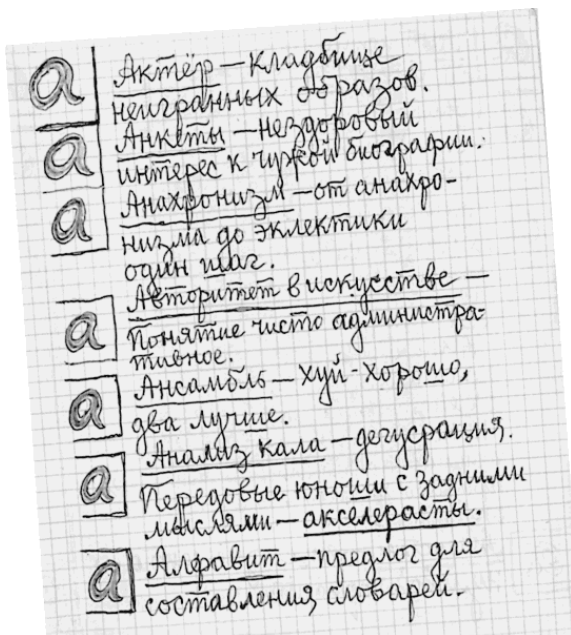 а Актёр — кладбище
неигранных образов.
а Анкеты — нездоровый
интерес к чужой биографии.
а Анахронизм — от анахро-
низма до эклектики
один шаг.
Авторитет в искусстве —
а Понятие чисто администра-
тивное.
а Ансамбль — хуй-хорошо,
два лучше.
Анализ кала — дегусрация.
а Передовые юноши с задними
мыслями — акселерасты.
а Алфавит — предлог для
составления словарей.